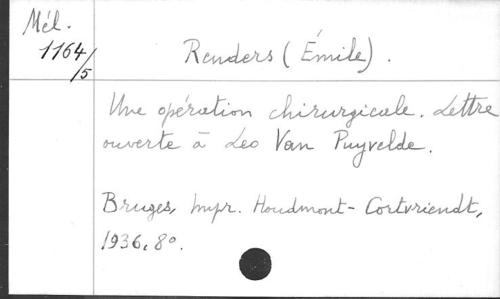 Mél.
1164/5
Renders (Émile).
Une opération chirurgicale. Lettre
ouverte à Leo Van Puyvelde.
Bruges, Impr. Houdmont-Cortvriendt,
1936, 8º.